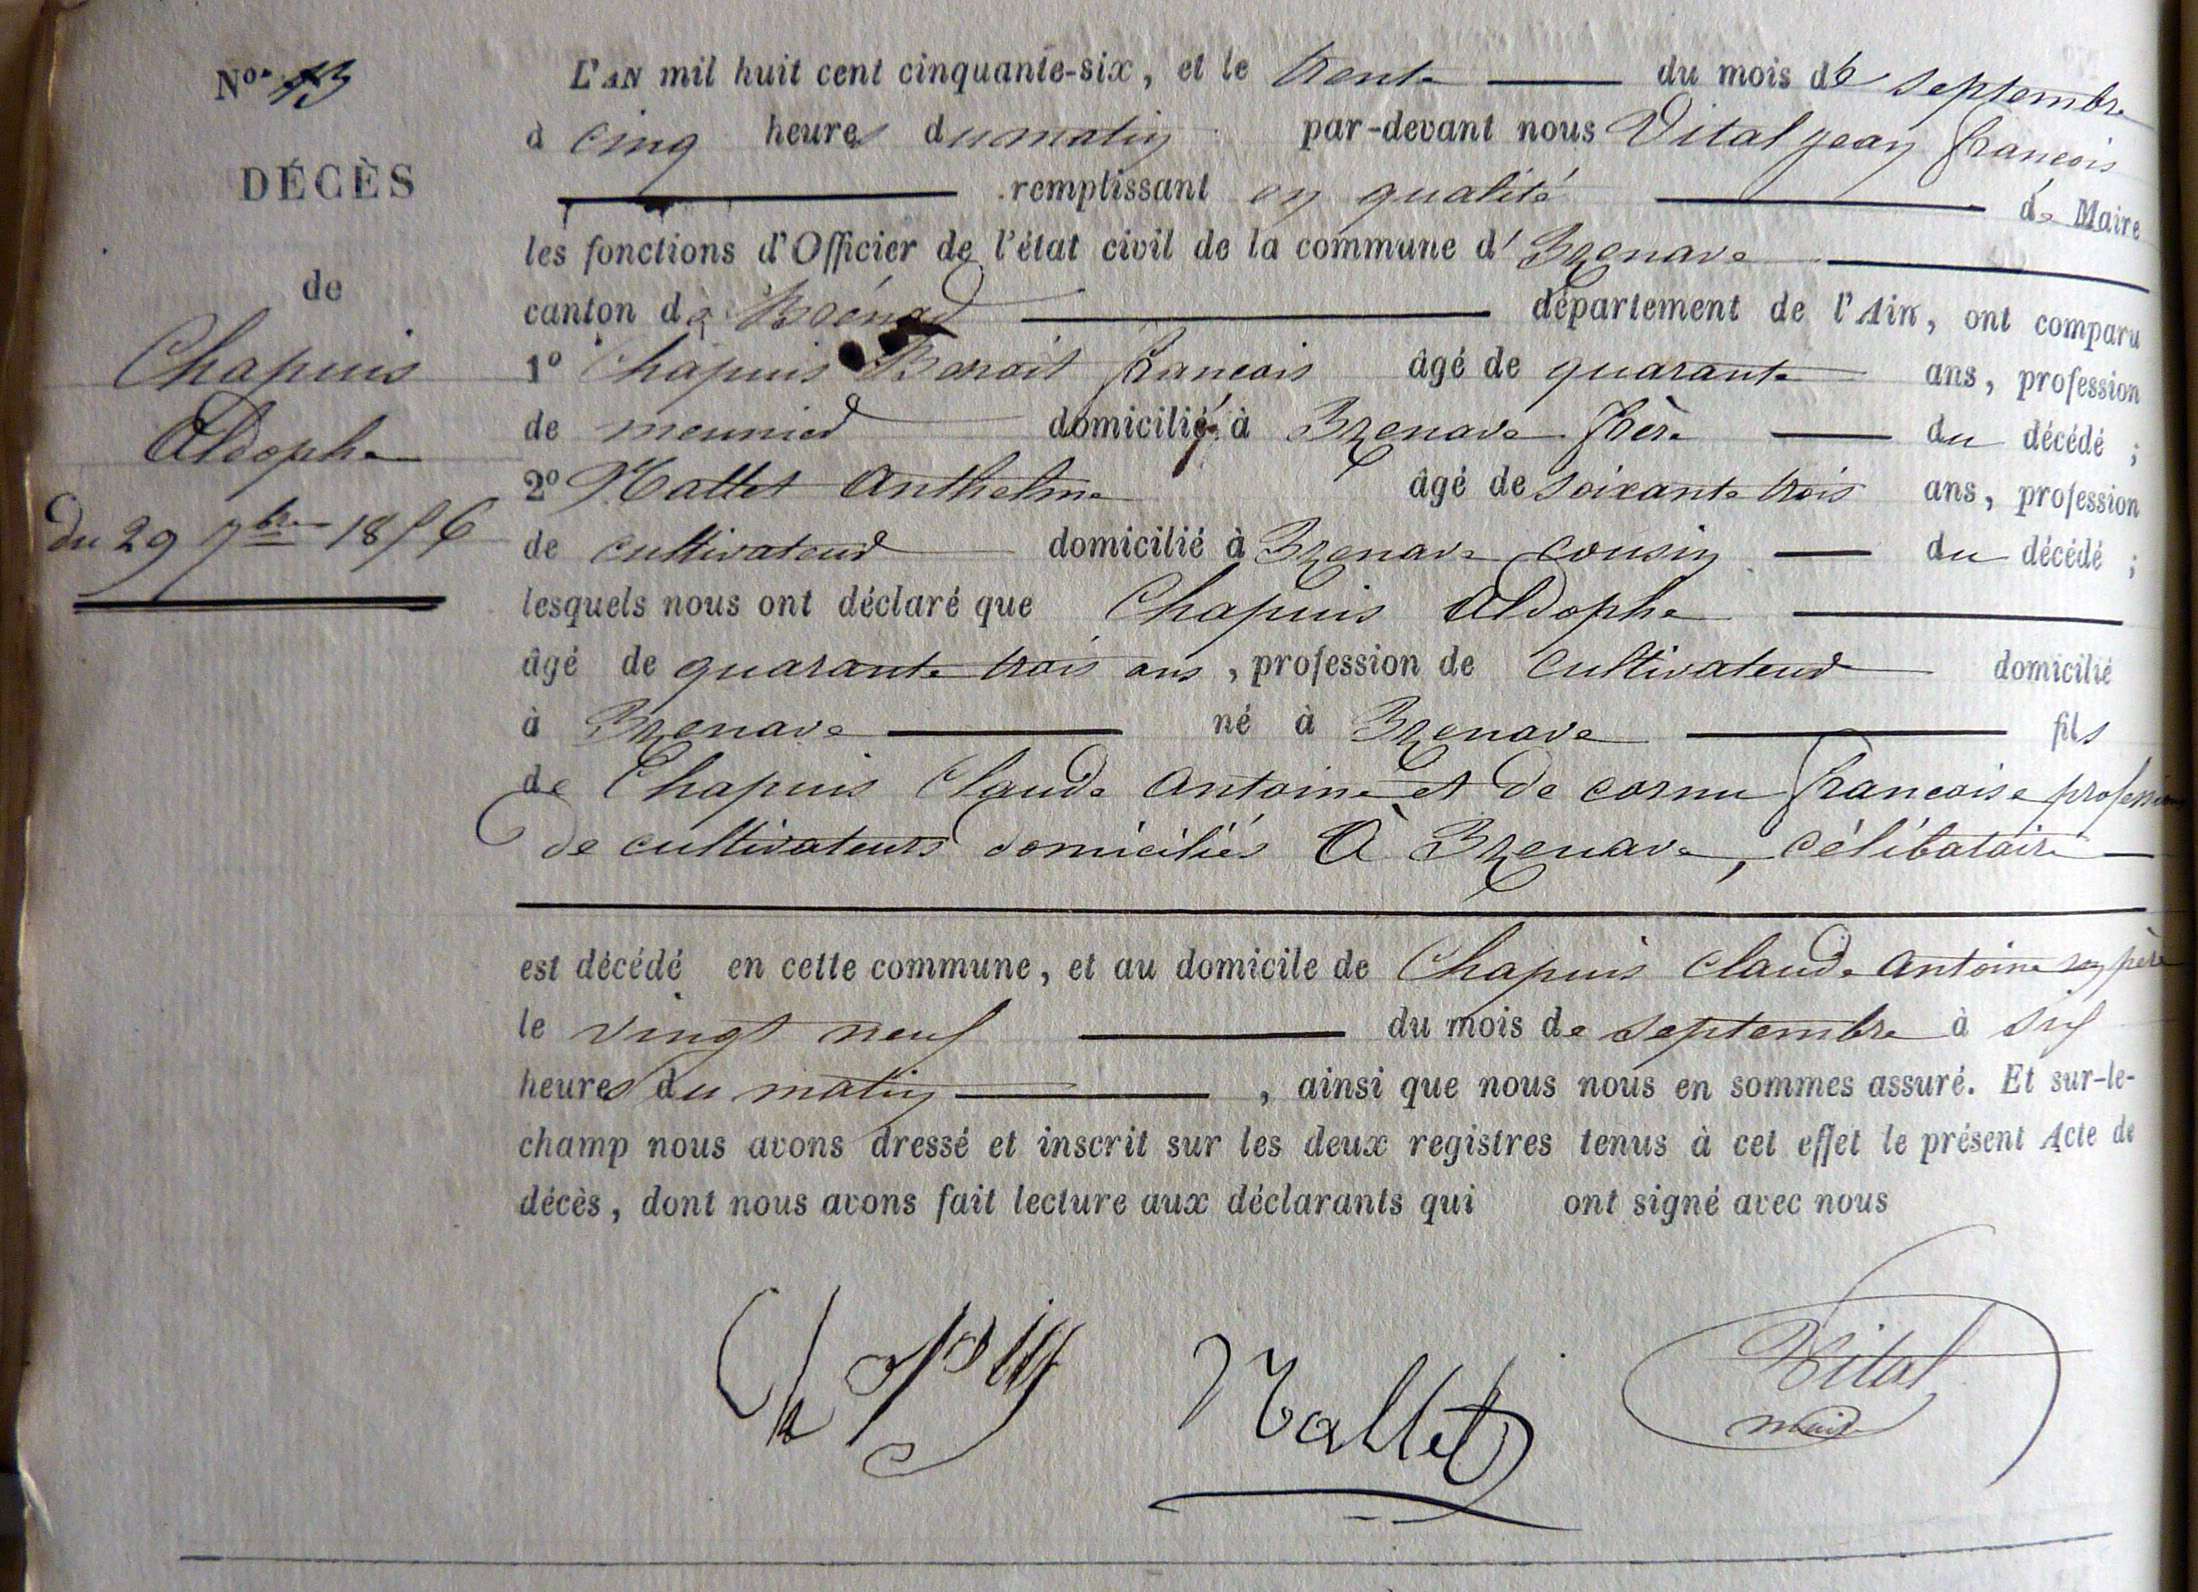 No. 13
DÉCÈS
de
Chapuis
Aldophe
du 29 7bre 1856
L'AN mil huit cent cinquante-six, et le trente du mois de septembre
à cinq heures du matin par-devant nous Vital jean francois
remplissant en qualité de Maire
les fonctions d'Officier de l'état civil de la commune d' Izenave
canton de Brénod département de l'Ain, ont comparu
1° Chapuis Benoit francois âgé de quarante ans, profession
de meunier domicilié à Izenave frère du décédé ;
2° Nallet Anthelme âgé de soixante trois ans, profession
de cultivateur domicilié à Izenave cousin du décédé ;
lesquels nous ont déclaré que Chapuis Aldophe
âgé de quarante trois ans, profession de cultivateur domicilié
à Izenave né à Izenave fils
de Chapuis Claude Antoine et de cornu francoise profession
de cultivateurs domiciliés à Izenave, célibataire
est décédé en cette commune, et au domicile de Chapuis Claude Antoine son père
le vingt neuf du mois de septembre à six
heures du matin, ainsi que nous nous en sommes assuré. Et sur-le-
champ nous avons dressé et inscrit sur les deux registres tenus à cet effet le présent Acte de
décès, dont nous avons fait lecture aux déclarants qui ont signé avec nous
Nallet
Vital
maire